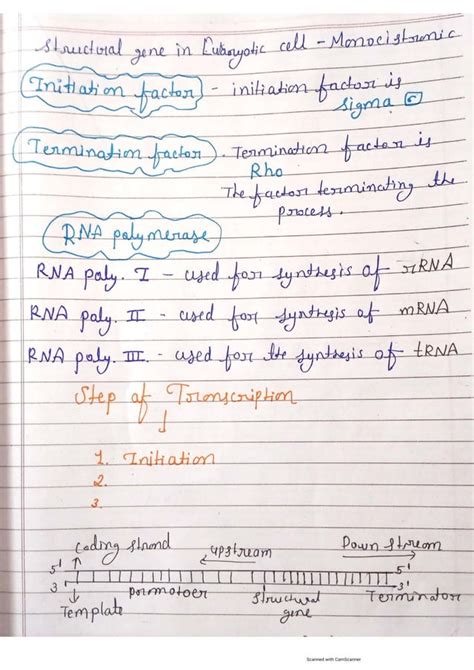 Structural gene in Eukaryotic cell - Monocistronic
Initiation factor - initiation factor is
sigma σ
Termination factor. Termination factor is
Rho
The factor terminating the
process.
RNA polymerase
RNA poly. I - used for synthesis of rRNA
RNA poly. II - used for synthesis of mRNA
RNA poly. III. - used for the synthesis of tRNA
Step of Transcription
↓
1. Initiation
2.
3.
Coding strand upstream Down stream
5' 5'
3' 3'
Template Pormotoer Structural gene Terminator
Scanned with CamScanner